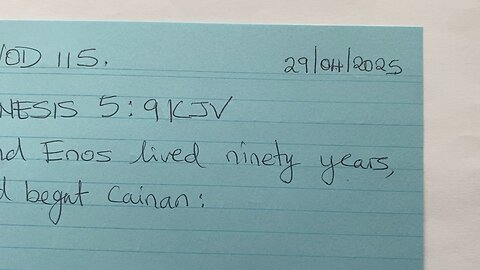 OD 115. 29/04/2025
NESIS 5:9 KJV
nd Enos lived ninety years,
d begat Cainan: